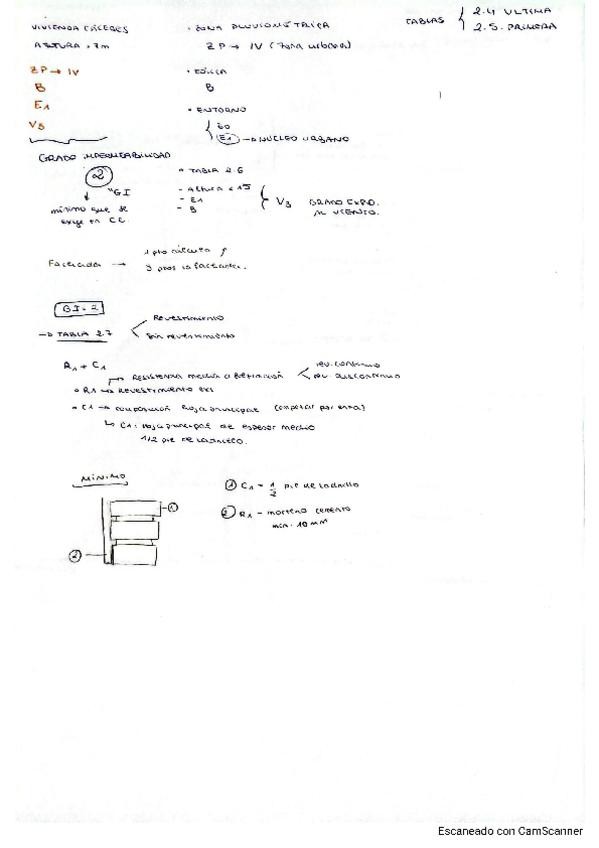 VIVIENDA CÁCERES
ALTURA = 7m
ZP → IV
B
E1
V3
GRADO IMPERMEABILIDAD
2 "GI
mínimo que se
exige en CC.
· ZONA PLUVIOMÉTRICA
ZP → IV (zona urbana)
· EÓLICA
B
· ENTORNO
E0
E1 → NÚCLEO URBANO
TABLAS { 2.4 ÚLTIMA
2.5. PRIMERA
· TABLA 2.6
- ALTURA < 15
- E1
- B
V3 GRADO EXPO.
AL VIENTO.
Fachada →
GI-2
→ TABLA 2.7
REVESTIMIENTO
SIN REVESTIMIENTO
R1 + C1
RESISTENCIA MEDIA A FILTRACIÓN
rev. continuo
rev. discontinuo
· R1 → REVESTIMIENTO EXT
· C1 → composición hoja principal (empezar por esta)
↳ C1: hoja principal de espesor medio
1/2 pie de ladrillo.
MÍNIMO
1
2
① C1 - 1/2 pie de ladrillo
② R1 - mortero cemento
min. 10 mm
Escaneado con CamScanner